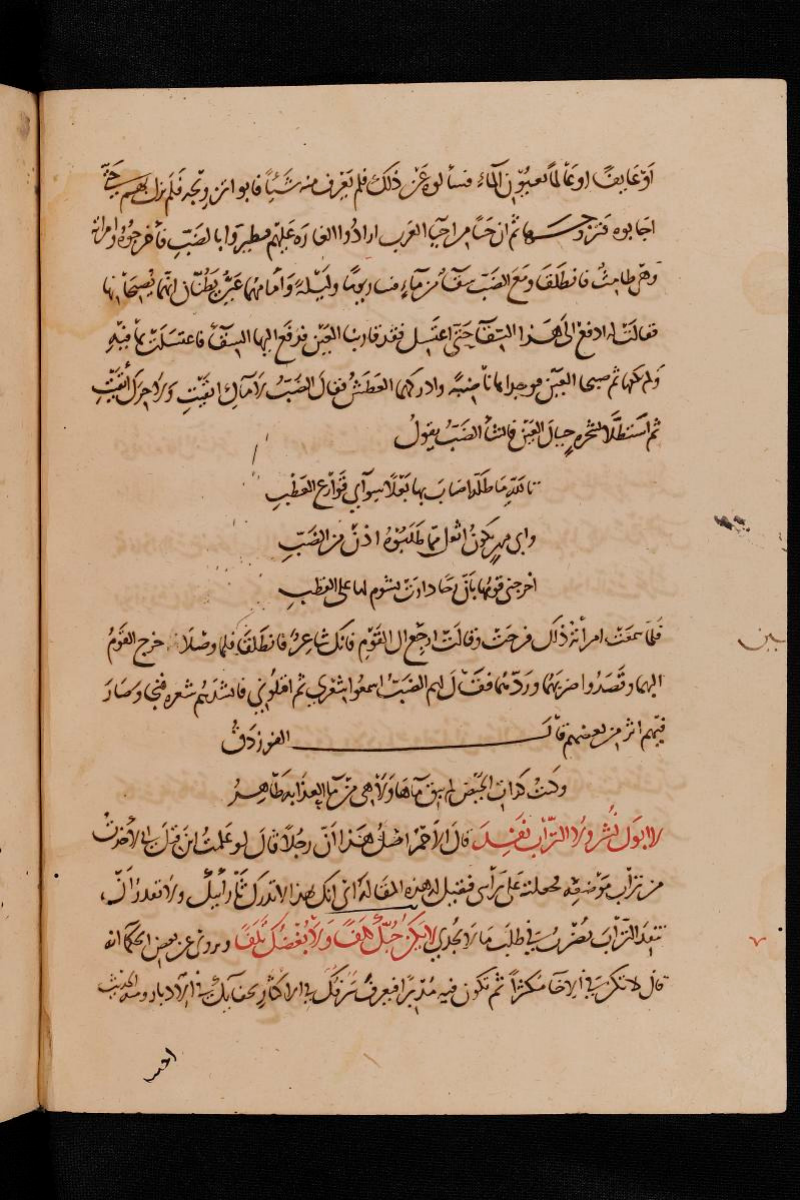 او عايفا او عالما بعيون الماء فسألوه عن ذلك فلم يعرف منه شيئا فابوا ان يزوجه فلم يزل بهم حتى
اجابوه فتزوجها ثم ان حيا من احيا العرب ارادوا الغارة عليهم فتطيروا بالضب فأخرجوه وامرأته
وهي طامث فانطلقا ومع الضب سقآ من ماء فسارا يوما وليلة وأمامهما عين يظنان انهما يصبحانها
فقالت له ادفع الى هذا السقآ حتى اغتسل فقد قاربنا العين فدفع اليها السقآ فاغتسلت بما فيه
ولم يكفها ثم صبحا العين فوجداها ناضبة وادركهما العطش فقال الضب لا مآك ابقيت ولا حرك أنقيت
ثم استظلا بشجرة حيال العين فانشأ الضب يقول
تالله ما طلة اصاب بها بعلا سوآي قوارع العطب
واي مهر يكون اثقل مما طلبوه اذن من الضب
اخرجني قومها بأن رحا دارت بشوم لها على القطب
فلما سمعت امرأته ذاك فرحت وقالت ارجع الى القوم فانك شاعر فانطلقا فلما وصلا خرج القوم
اليهما وقصدوا ضربهما وردهما فقال لهم الضب اسمعوا شعري ثم اقتلوني فانشدهم شعره فنجا وصار
فيهم اثر من بعضهم قال الفرزدق
وكنت كذات الحيض لم تبق مآها ولا هي من مآ العذابة طاهر
لا ابوك نشر ولا التراب نفد قال الاحمر اصل هذا ان رجلا قال لو علمت اين قتل ابي لأخذت
من تراب موضعه فجعلته على رأسي فقيل له هذه المقالة اي انك بهذا لا تدرك ثأر ابيك ولا تقدر ان
تنفد التراب يضرب في طلب ما لا يجدي لا يكن حبك كلفا ولا بغضك تلفا ويروى عن بعض الحكمآ انه
قال لا تكن في الاخآ مكثرا ثم تكون فيه مدبرا فيعرف سرفك في الاكثار بجفآئك في الادبار ومنه الحديث